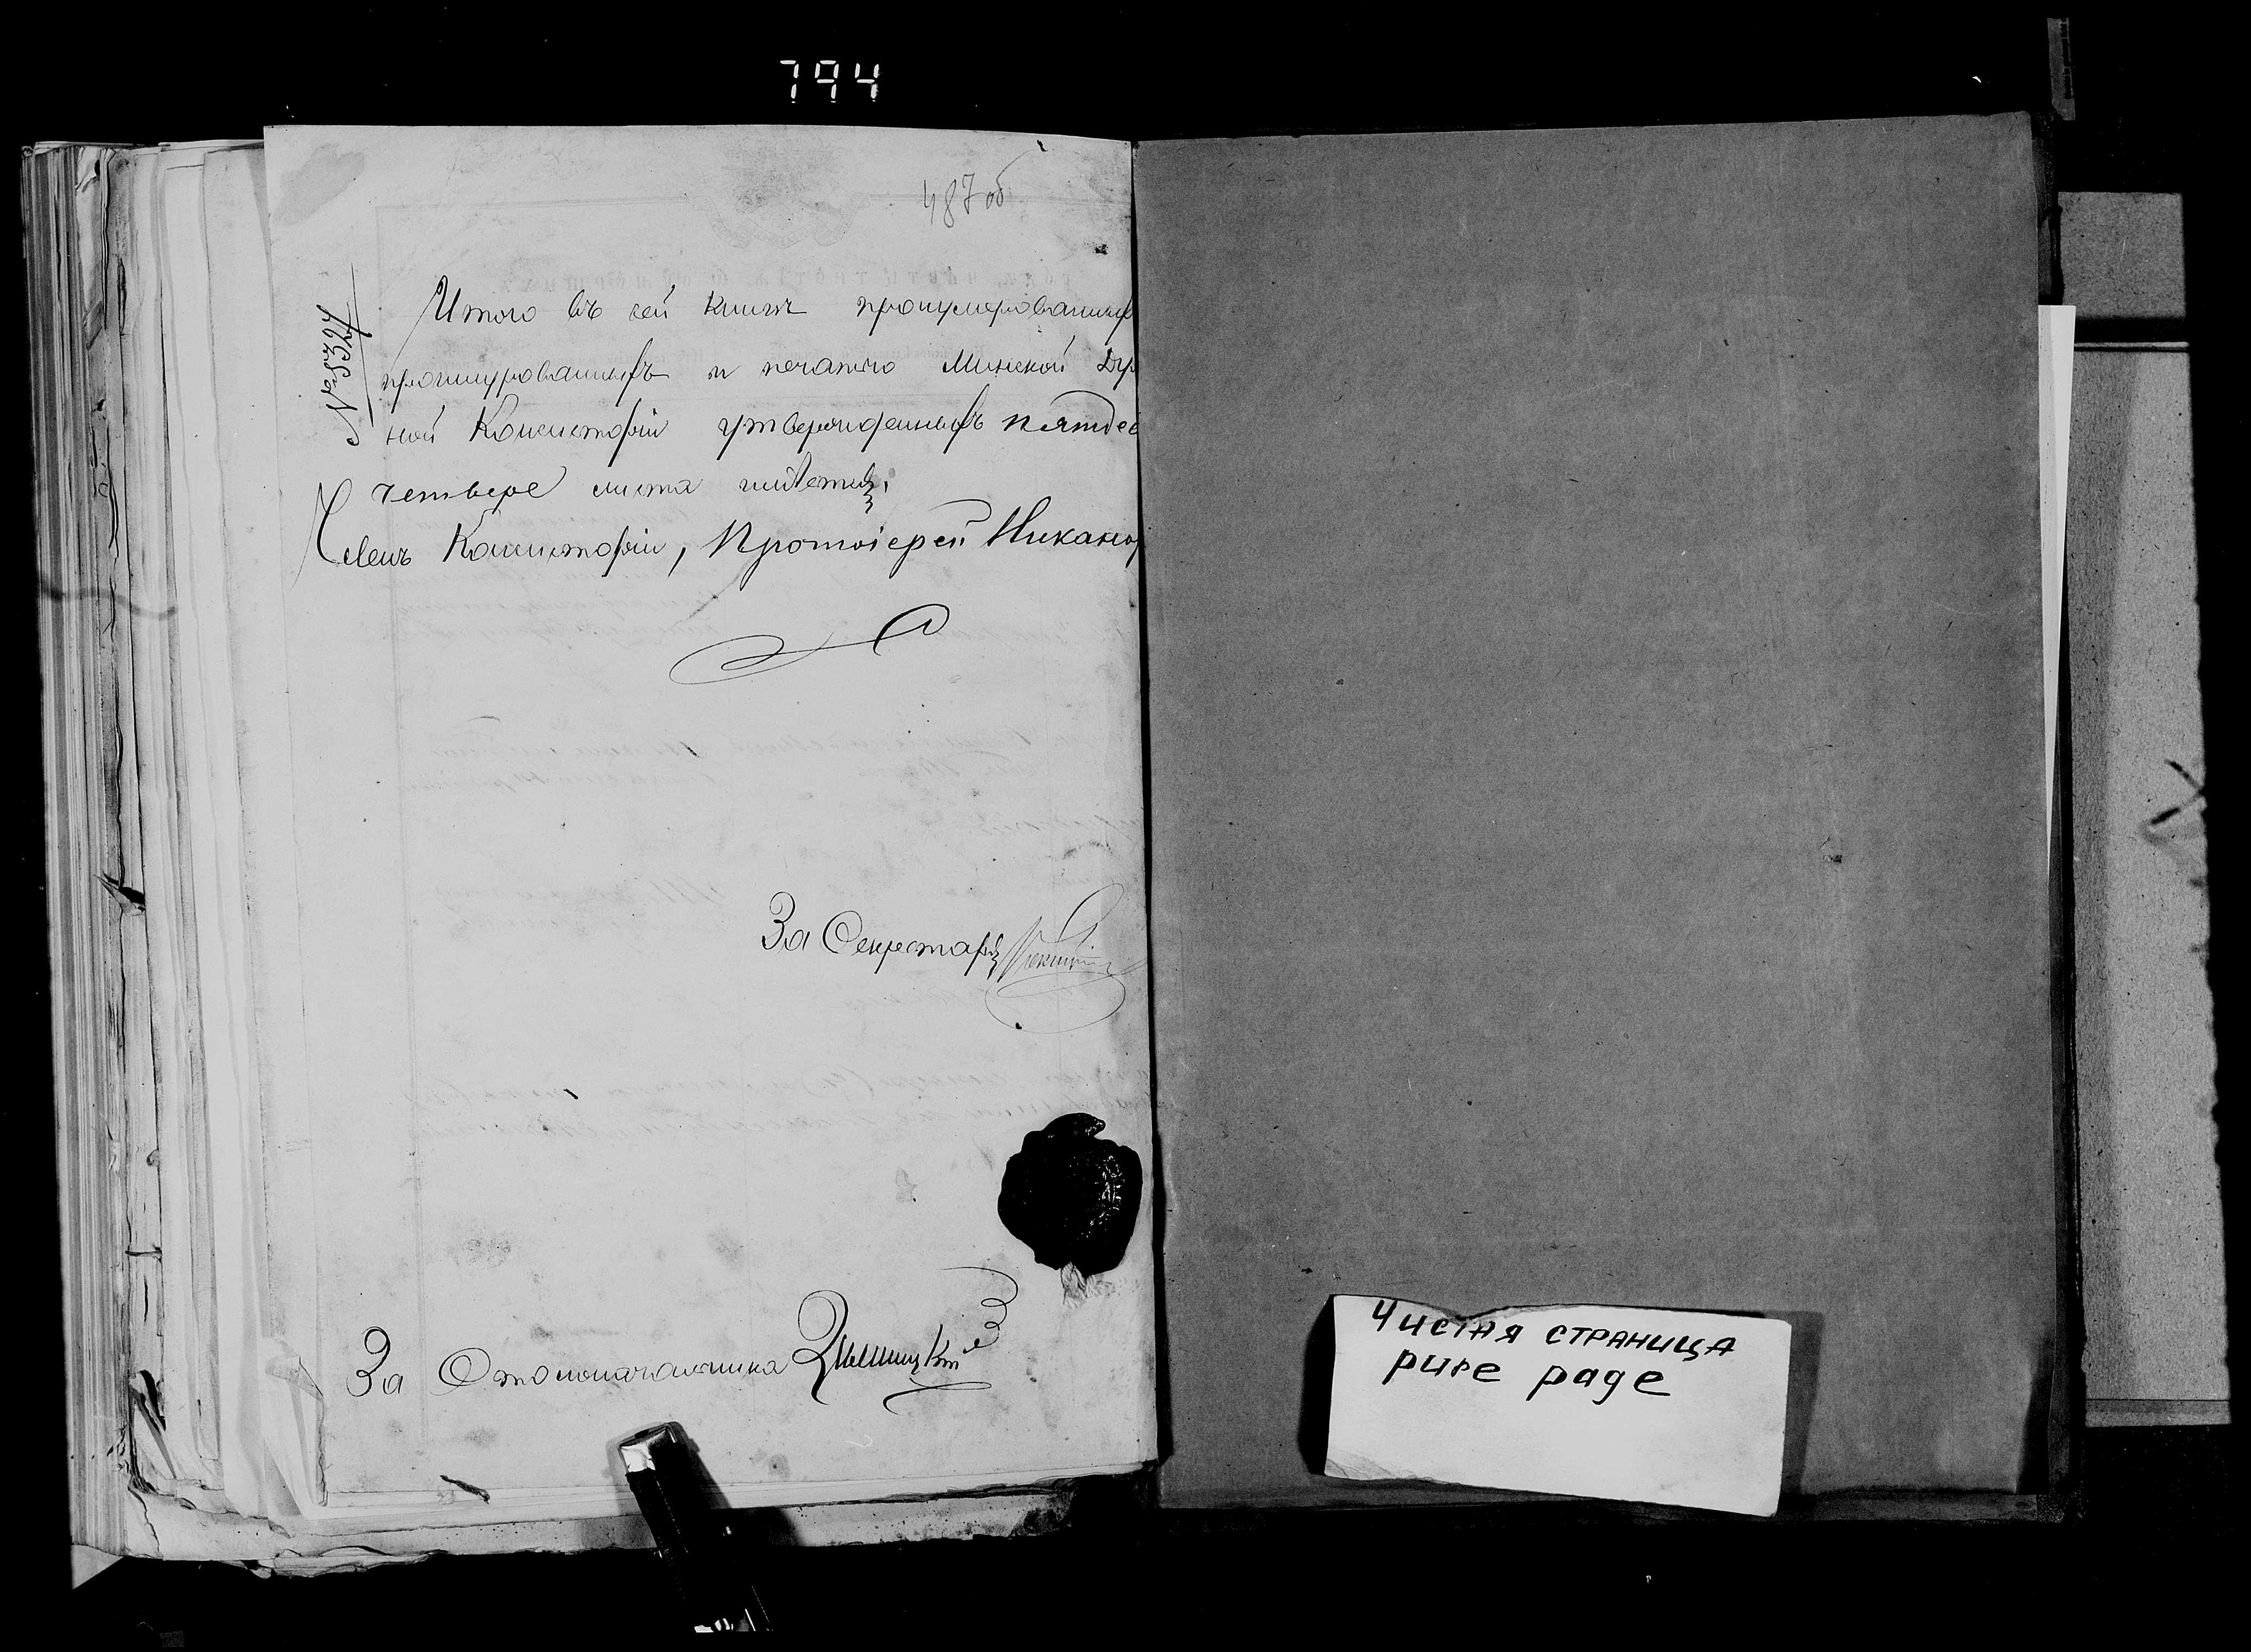 794
487 об
№ 5327
Итого въ сей книгѣ пронумерованныхъ
прошнурованныхъ и печатью Минской Дух
ной Консисторіи утвержденныхъ пятдес
четвере листа
Членъ Консисторіи, Протоіерей Никанор
За Секретаря
За Столоначальника
Чистая страница
pure page